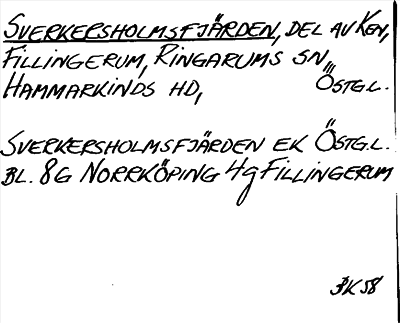 SVERKERSHOLMSFJÄRDEN, DEL AV KGN,
FILLINGERUM, RINGARUMS SN,
HAMMARKINDS HD, ÖSTGL.
SVERKERSHOLMSFJÄRDEN EK ÖSTG.L.
BL. 8G NORRKÖPING 4g FILLINGERUM
BK58